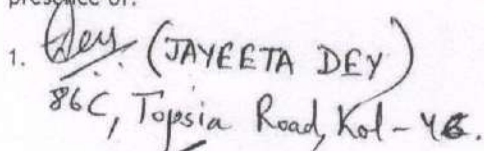 presence of:
1. Dey (JAYEETA DEY)
86C, Topsia Road, Kol - 46.